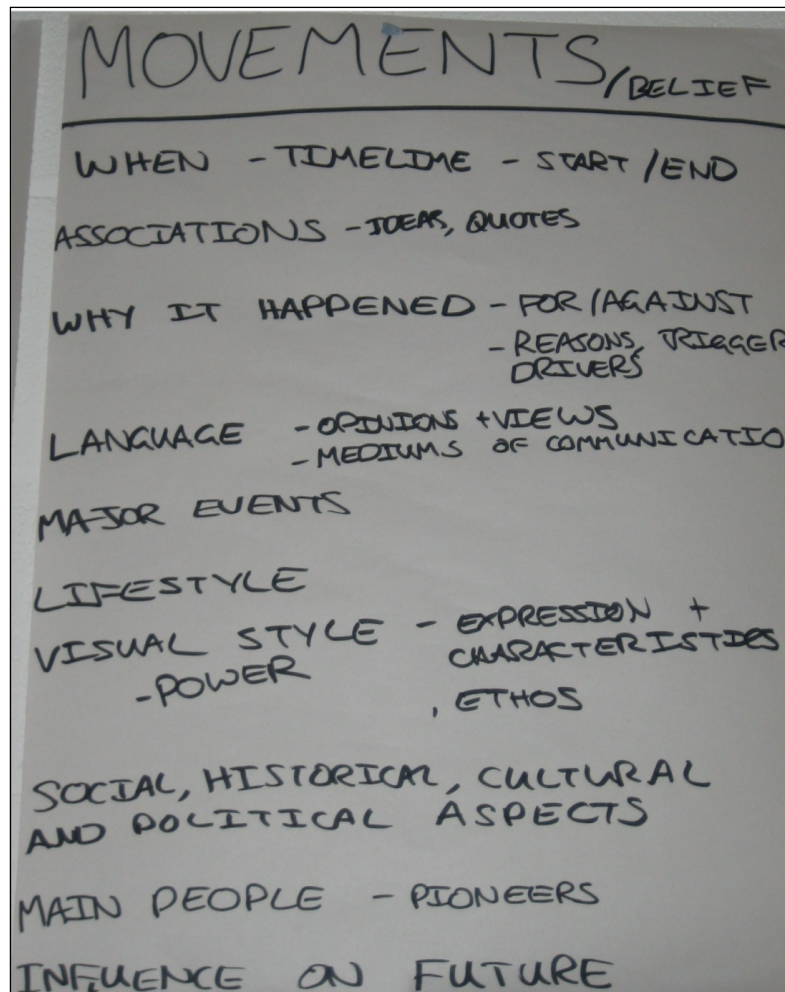 MOVEMENTS/BELIEF
WHEN - TIMELINE - START/END
ASSOCIATIONS - IDEAS, QUOTES
WHY IT HAPPENED - FOR/AGAINST
- REASONS, TRIGGER
DRIVERS
LANGUAGE - OPINIONS + VIEWS
- MEDIUMS OF COMMUNICATIO
MAJOR EVENTS
LIFESTYLE
VISUAL STYLE - EXPRESSION +
CHARACTERISTICS
- POWER
, ETHOS
SOCIAL, HISTORICAL, CULTURAL
AND POLITICAL ASPECTS
MAIN PEOPLE - PIONEERS
INFLUENCE ON FUTURE